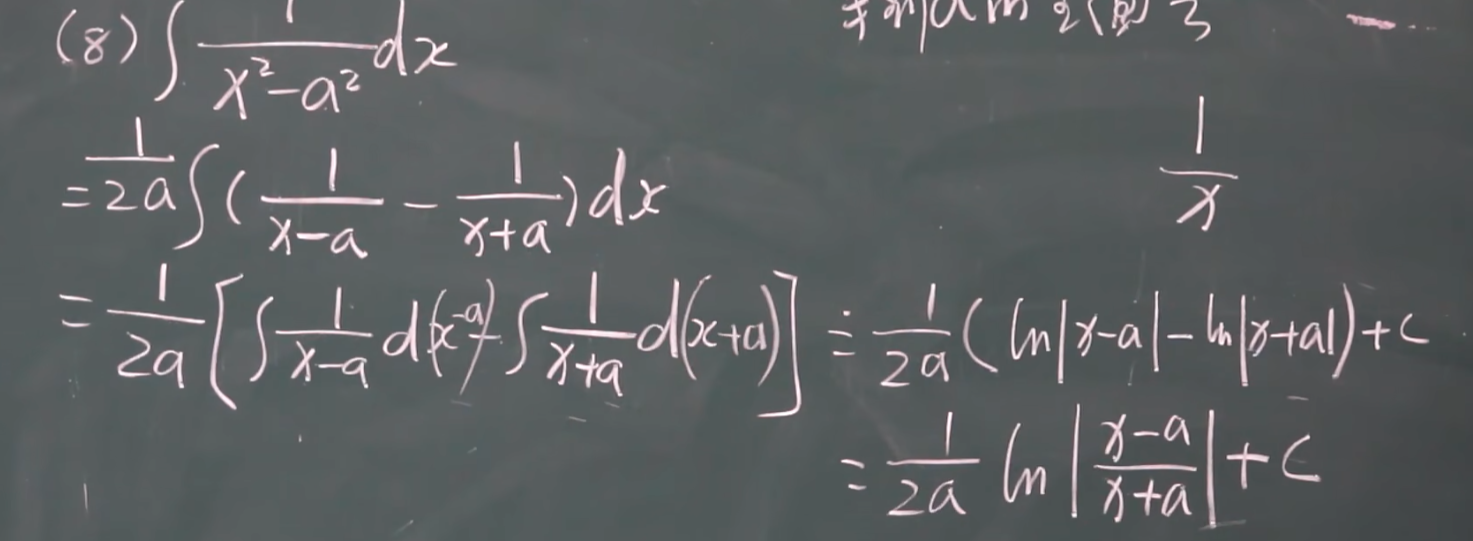 (8) ∫ 1/(x²-a²) dx
= 1/2a ∫ ( 1/(x-a) - 1/(x+a) ) dx
1/x
= 1/2a [ ∫ 1/(x-a) d(x-a) - ∫ 1/(x+a) d(x+a) ] = 1/2a ( ln|x-a| - ln|x+a| ) + C
= 1/2a ln | (x-a)/(x+a) | + C